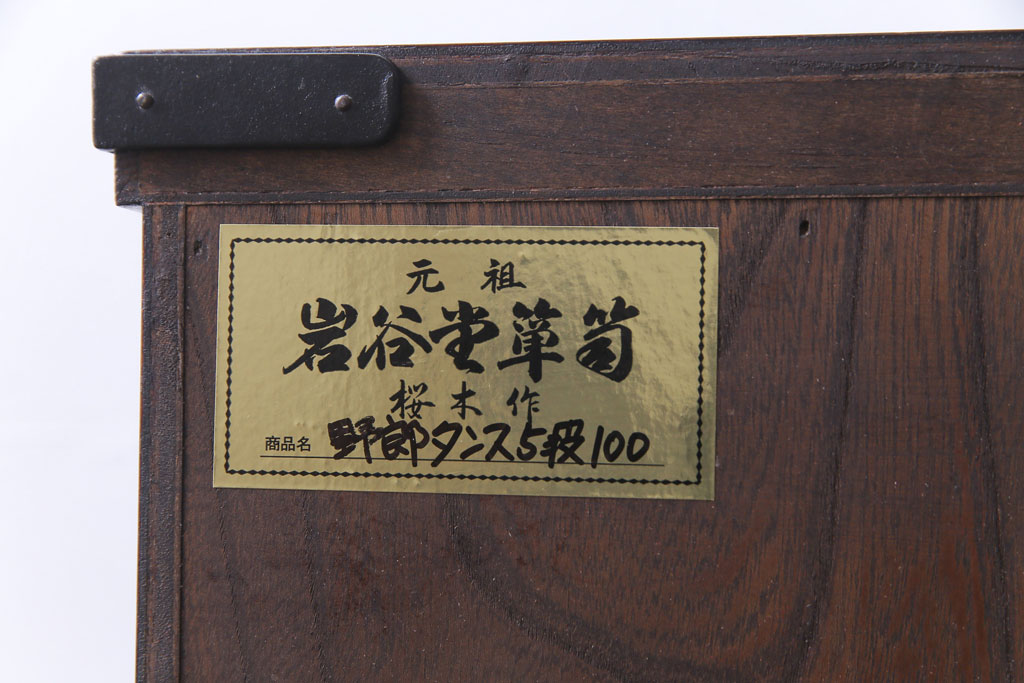 元祖
岩谷堂箪笥
桜木作
商品名 野郎タンス5段100